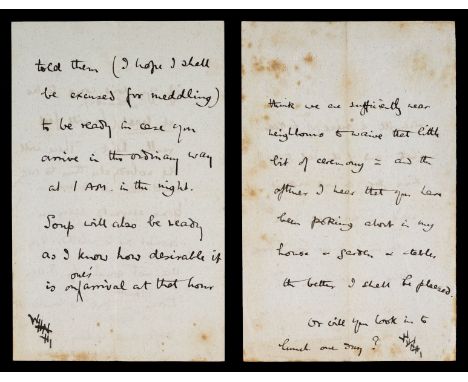 told them (I hope I shall
be excused for meddling)
to be ready in case you
arrive in the ordinary way
at 1 A.M. in the night.
Soup will also be ready
as I know how desirable it
one's
is on arrival at that hour
think we are sufficiently near
neighbours to waive that little
bit of ceremony = and the
oftener I hear that you have
been poking about in my
house & garden & stables
the better I shall be pleased.
Or will you look in to
lunch one day?